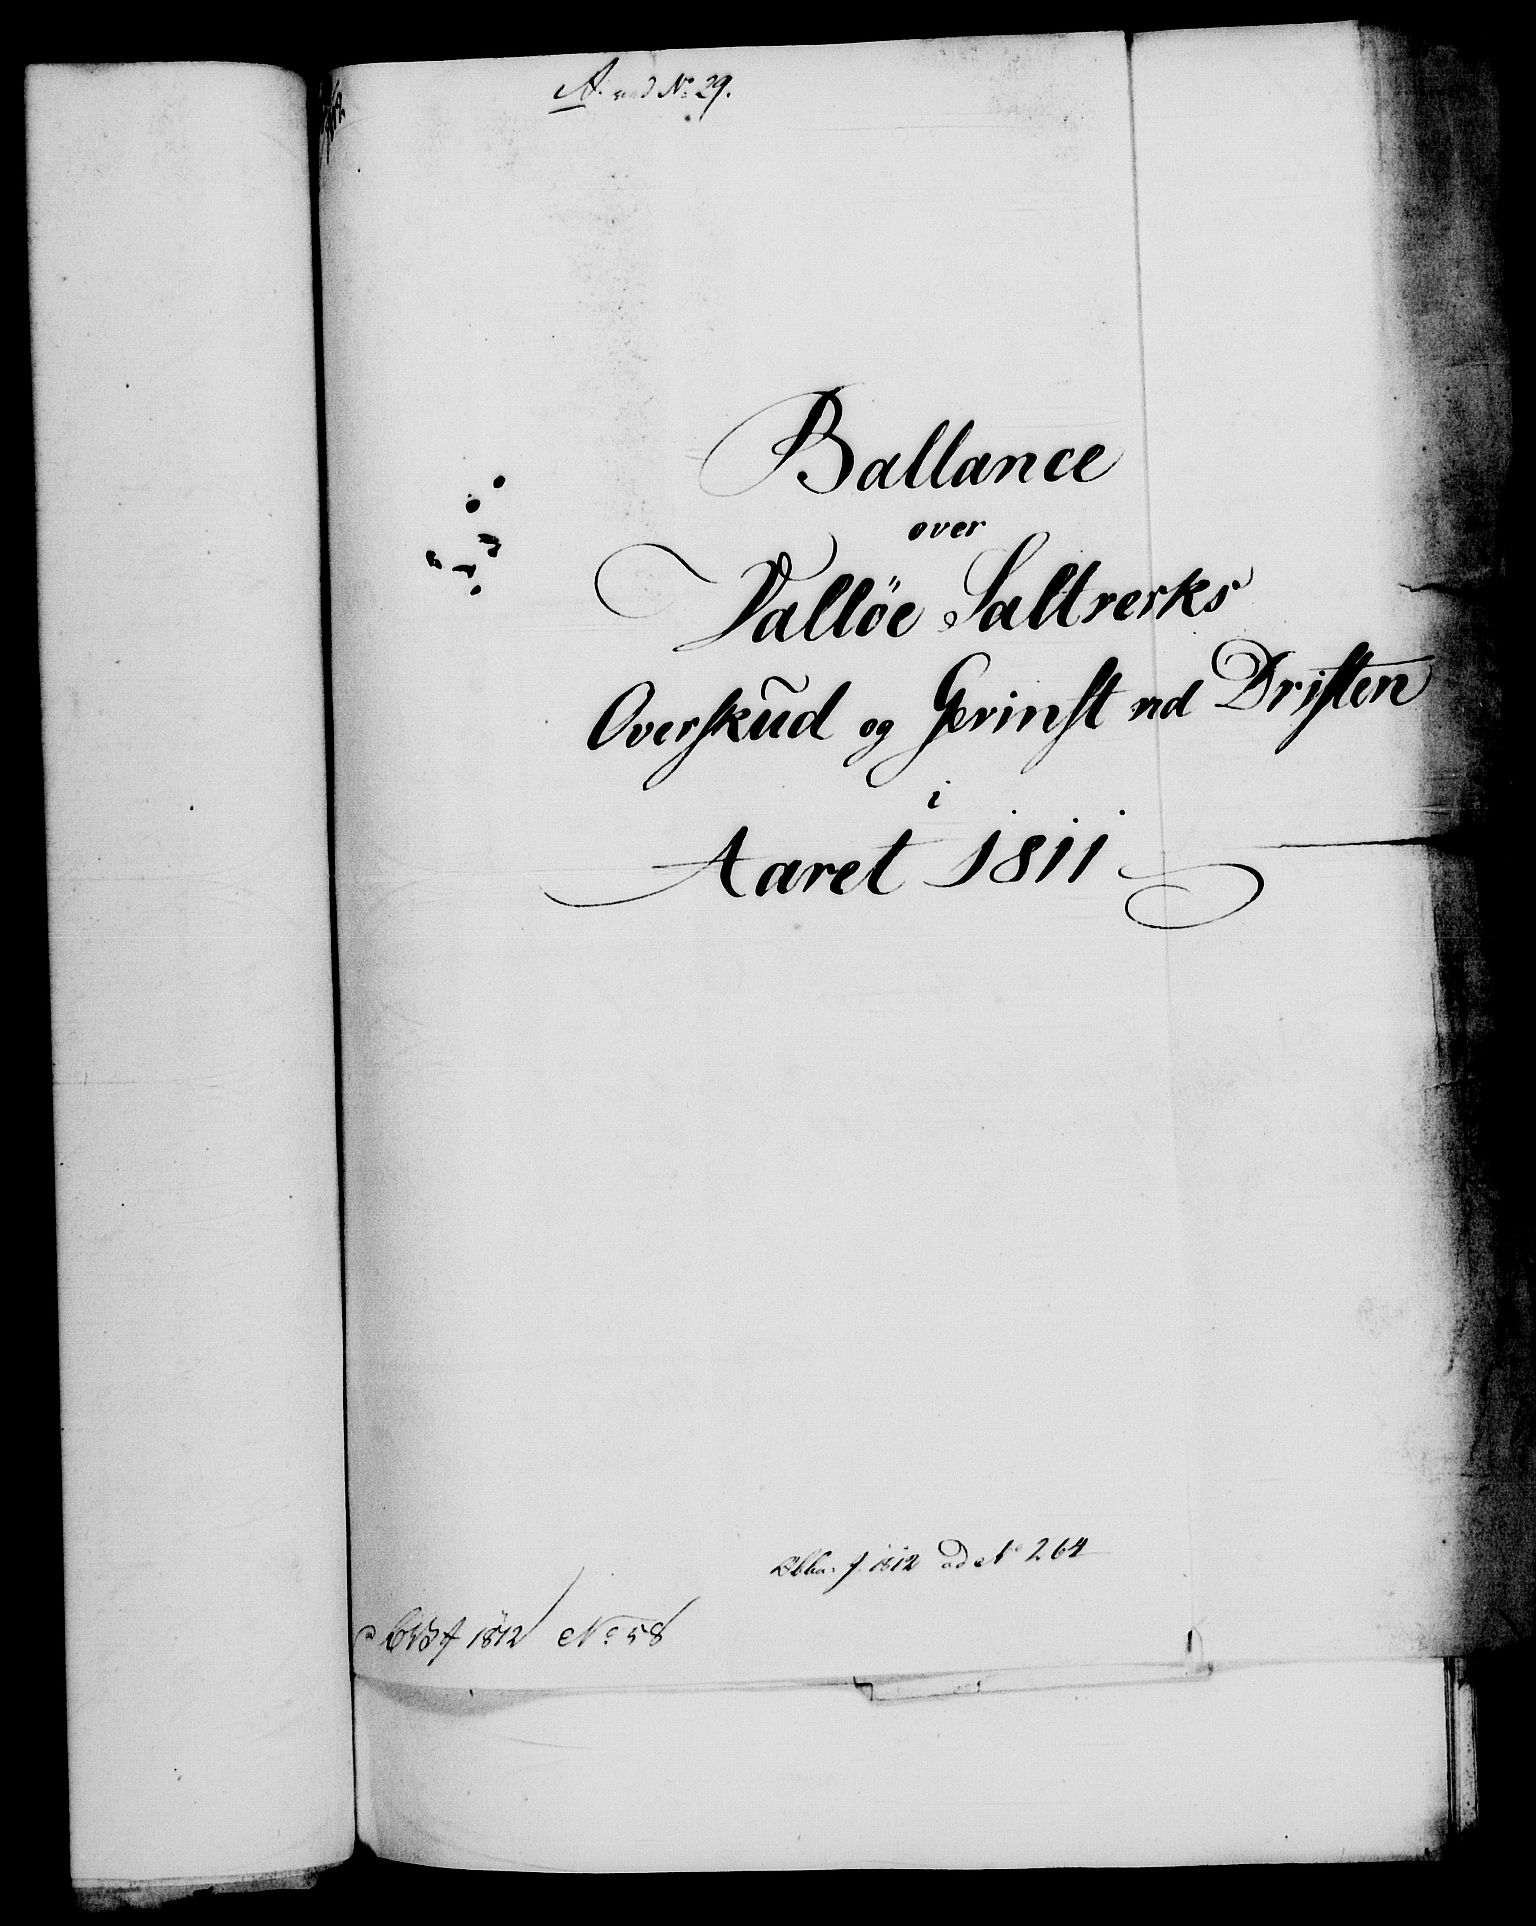 A. ved No 29.
Ballance
over
Valløe Saltverks
Overskud og Gevinst ved Driften
i
Aaret 1811
f. 1812 ad No 264
1812 No 58